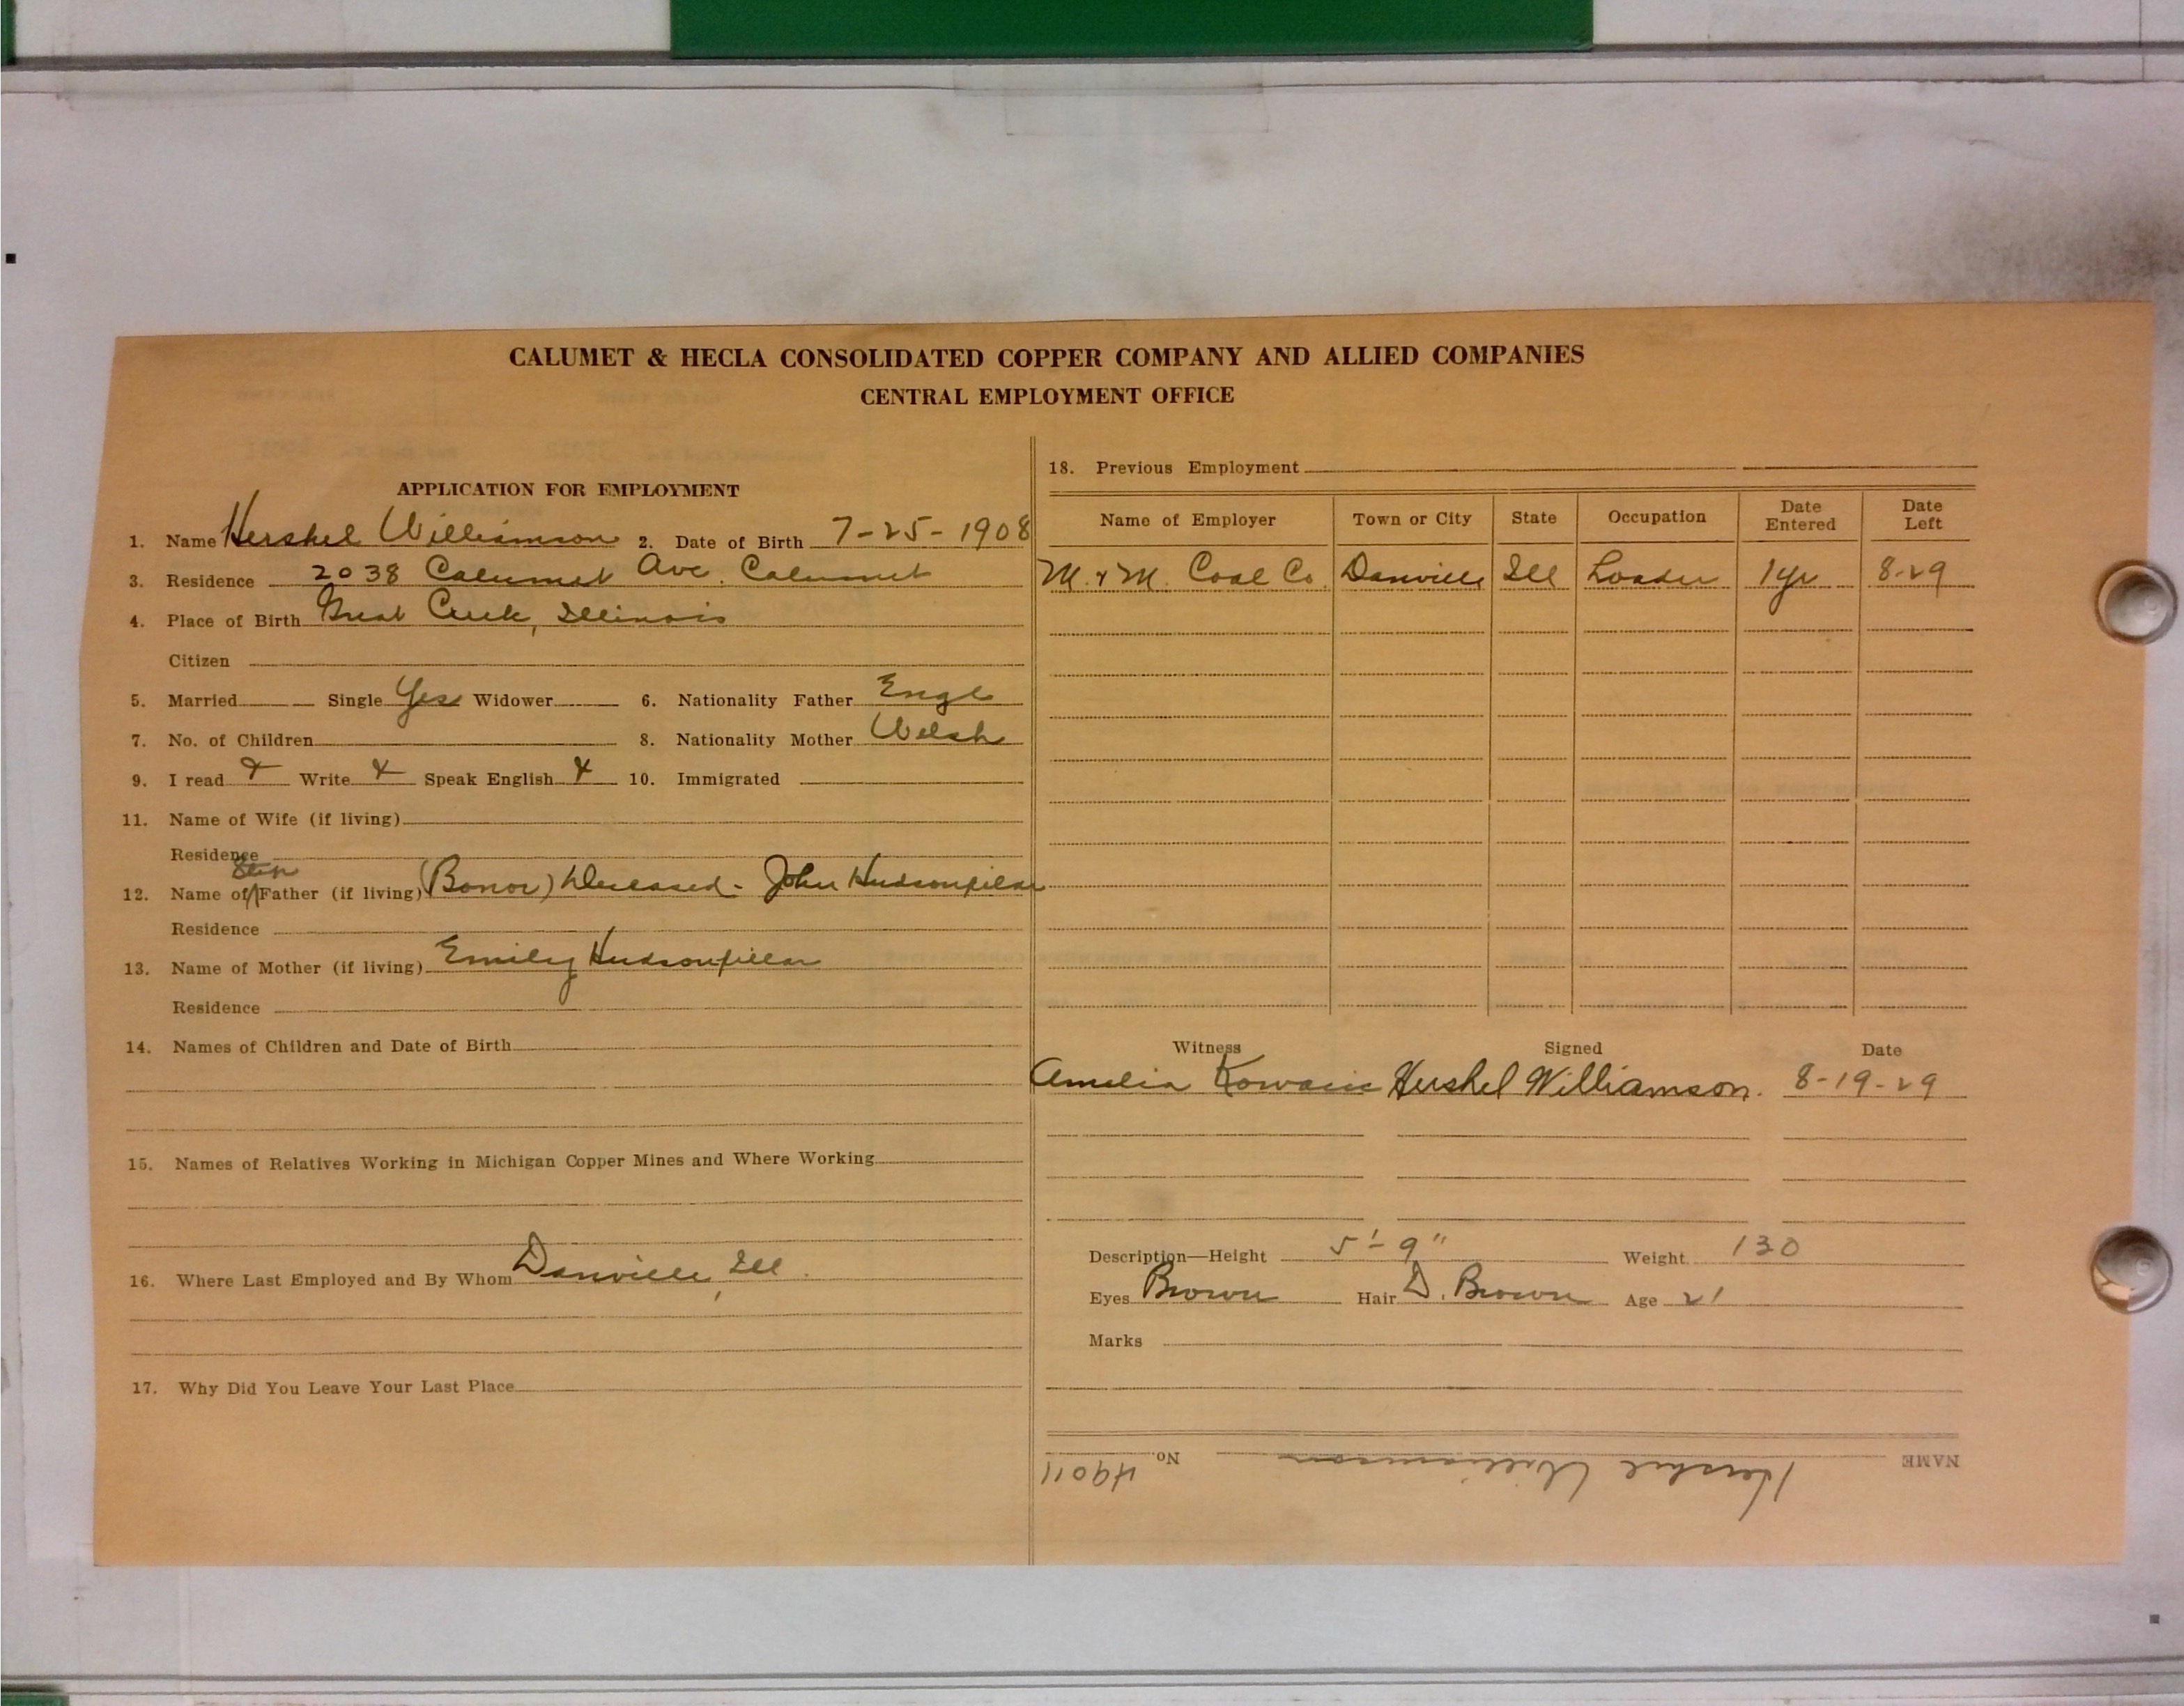 CALUMET & HECLA CONSOLIDATED COPPER COMPANY AND ALLIED COMPANIES
CENTRAL EMPLOYMENT OFFICE
APPLICATION FOR EMPLOYMENT
1. Name Hershel Williamson 2. Date of Birth 7-25-1908
3. Residence 2038 Calumet Ave. Calumet
4. Place of Birth Creek, Illinois
Citizen
5. Married Single Yes Widower 6. Nationality Father Engl
7. No. of Children 8. Nationality Mother Welsh
9. I read x Write x Speak English x 10. Immigrated
11. Name of Wife (if living)
Residence
12. Name of Step Father (if living) (Bonor) Deceased - John Hudsonpillar
Residence
13. Name of Mother (if living) Emily Hudsonpillar
Residence
14. Names of Children and Date of Birth
15. Names of Relatives Working in Michigan Copper Mines and Where Working
16. Where Last Employed and By Whom Danville, Ill.
17. Why Did You Leave Your Last Place
18. Previous Employment
Name of Employer Town or City State Occupation Date Entered Date Left
M. & M. Coal Co. Danville Ill Loader 1yr 8-29
Witness Signed Date
Amelia Hershel Williamson. 8-19-29
Description—Height 5'-9" Weight 130
Eyes Brown Hair D. Brown Age 21
Marks
NAME Hershel Williamson No. 49011